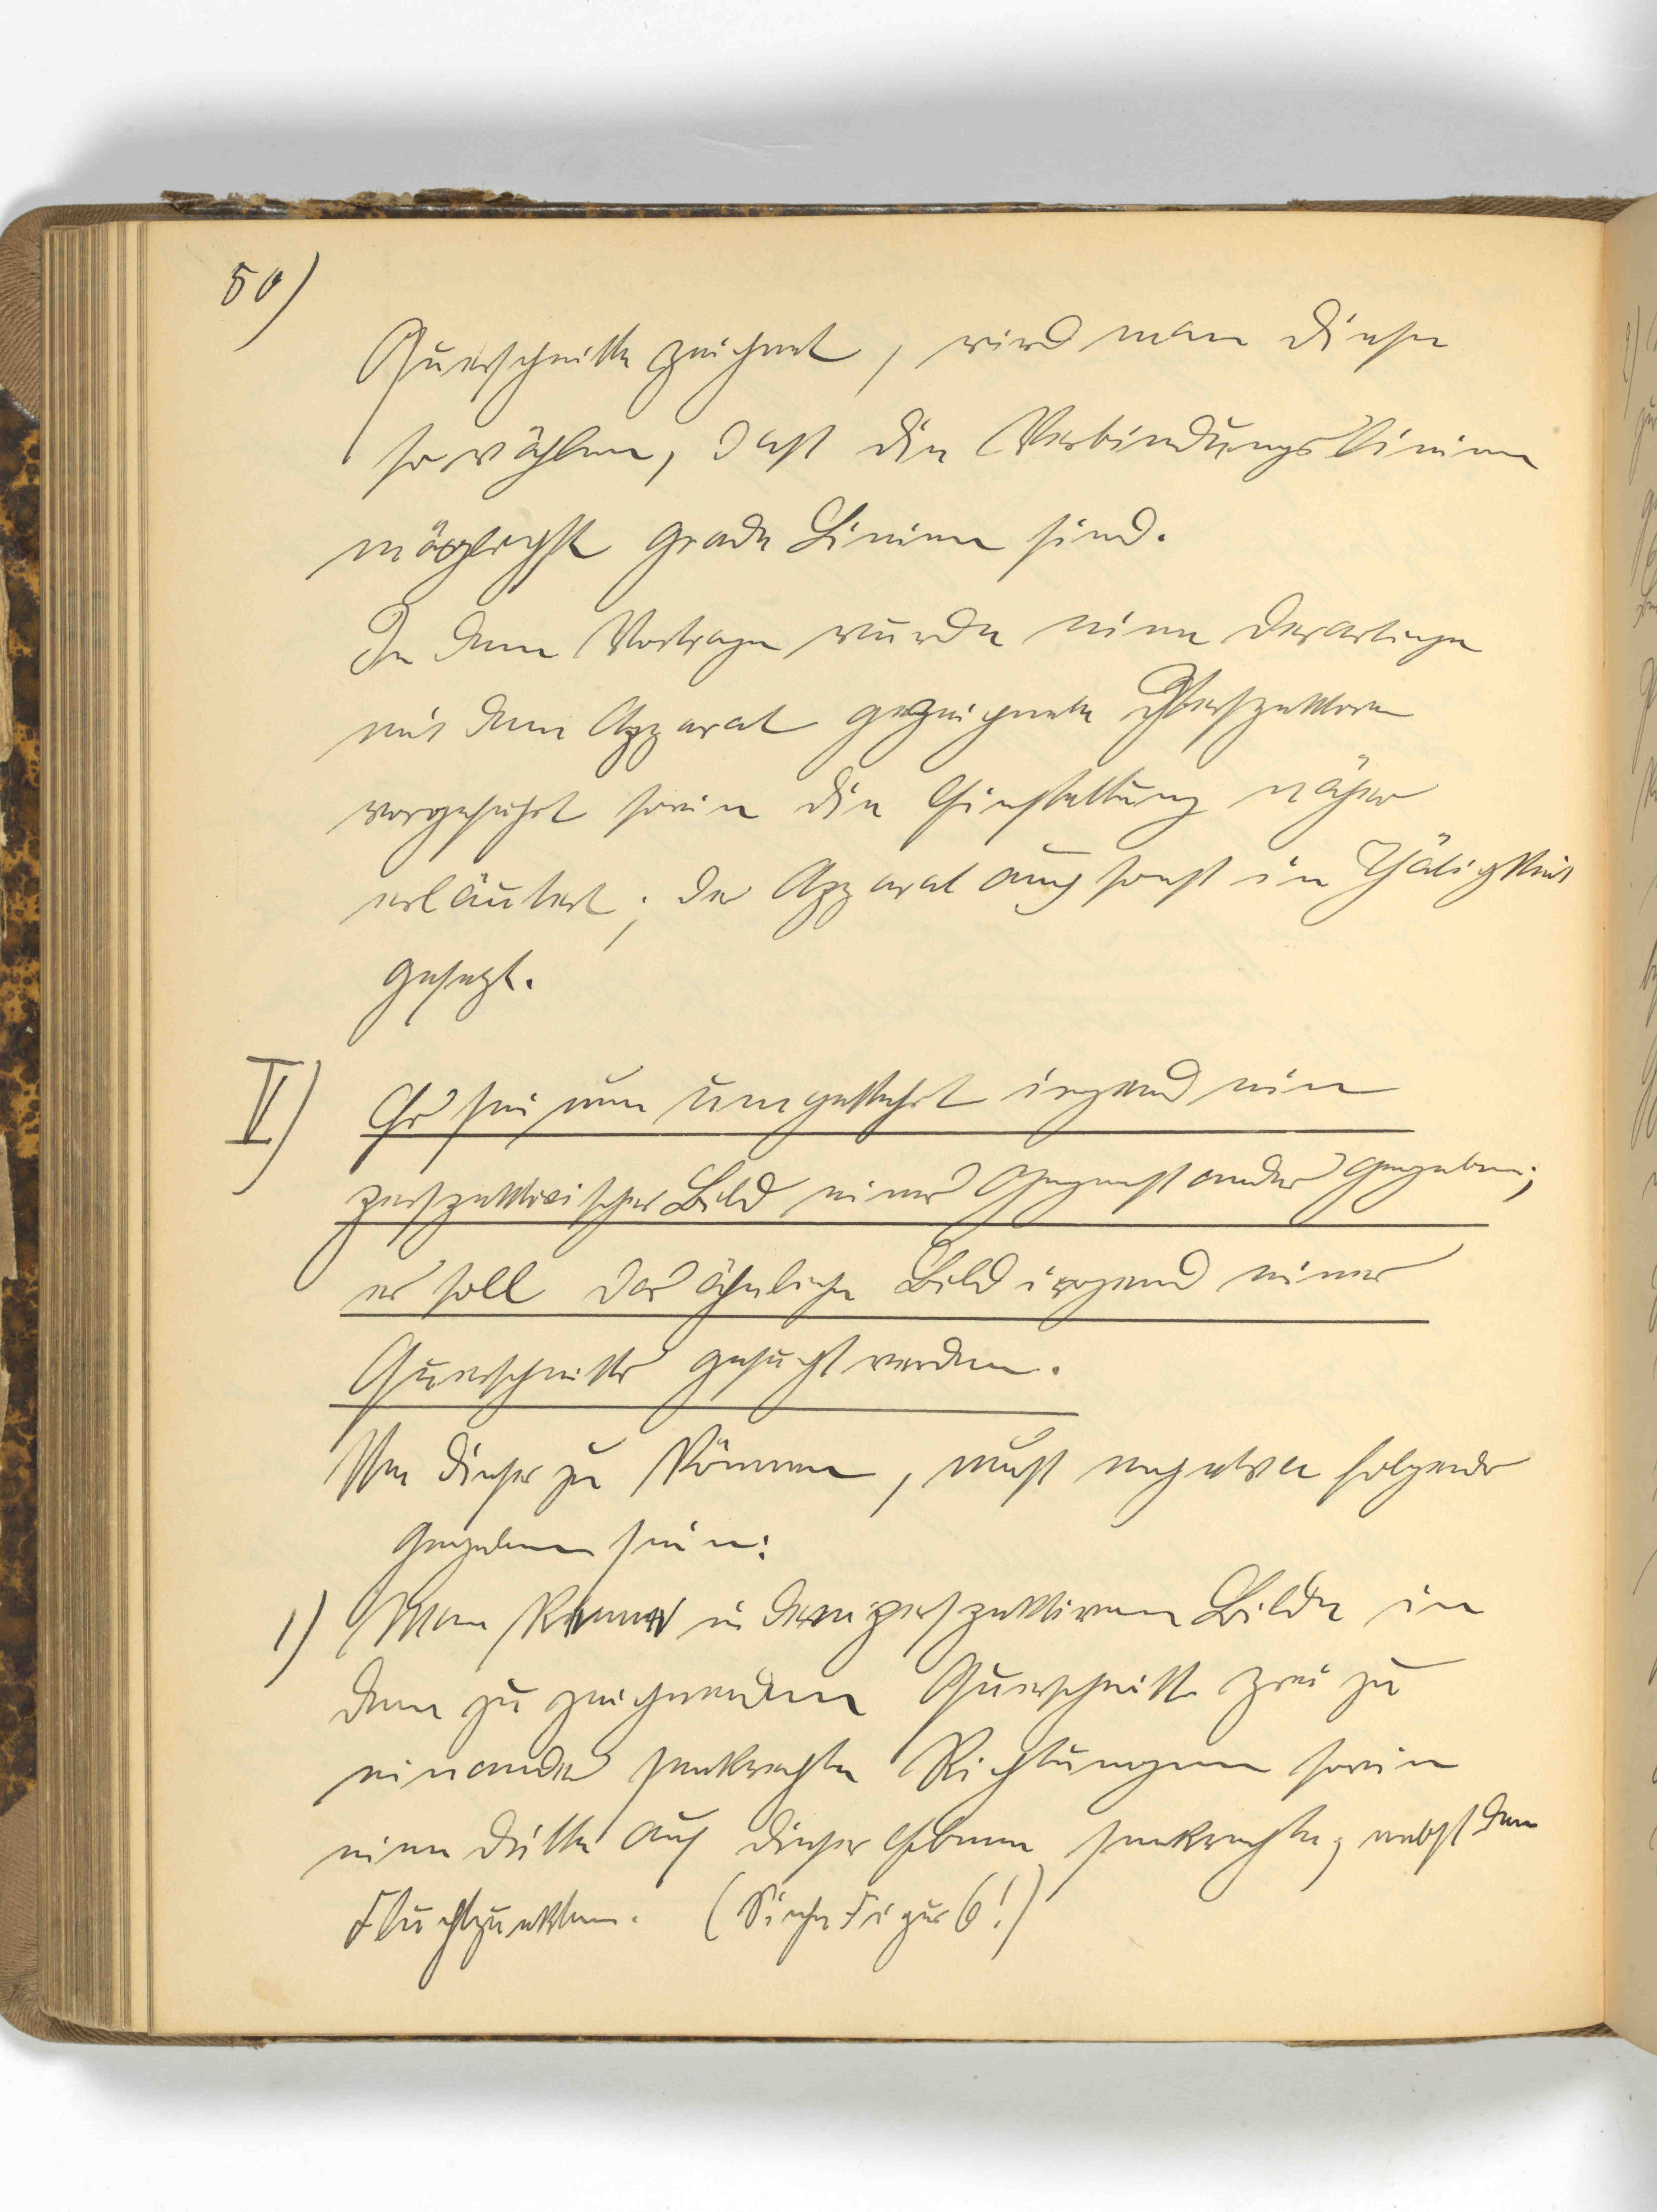 50)
Querschnitte zeichnet, wird man diese
so wählen, dass die Verbindungslinien
möglichst grade Linien sind.
In dem Vortrage wurde eine derartige
mit dem Apparat gezeichnete Perspektive
vorgeführt sowie die Einstellung näher
erläutert; der Apparat auch sonst in Thätigkeit
gesetzt.
V) Es sei nun umgekehrt irgend ein
perspektivisches Bild eines Gegenstandes gegeben;
es soll das ähnliche Bild irgend eines
Querschnitts gesucht werden.
Um dieses zu können, muss uns etwa folgendes
gegeben sein:
1) Man kenne in dem perspektiven Bilde in
dem zu zeichnenden Querschnitte zwei zu
einander senkrechte Richtungen sowie
eine dritte auf dieser Ebene senkrechte, nebst den
Fluchtpunkten. (Siehe Figur 6!)